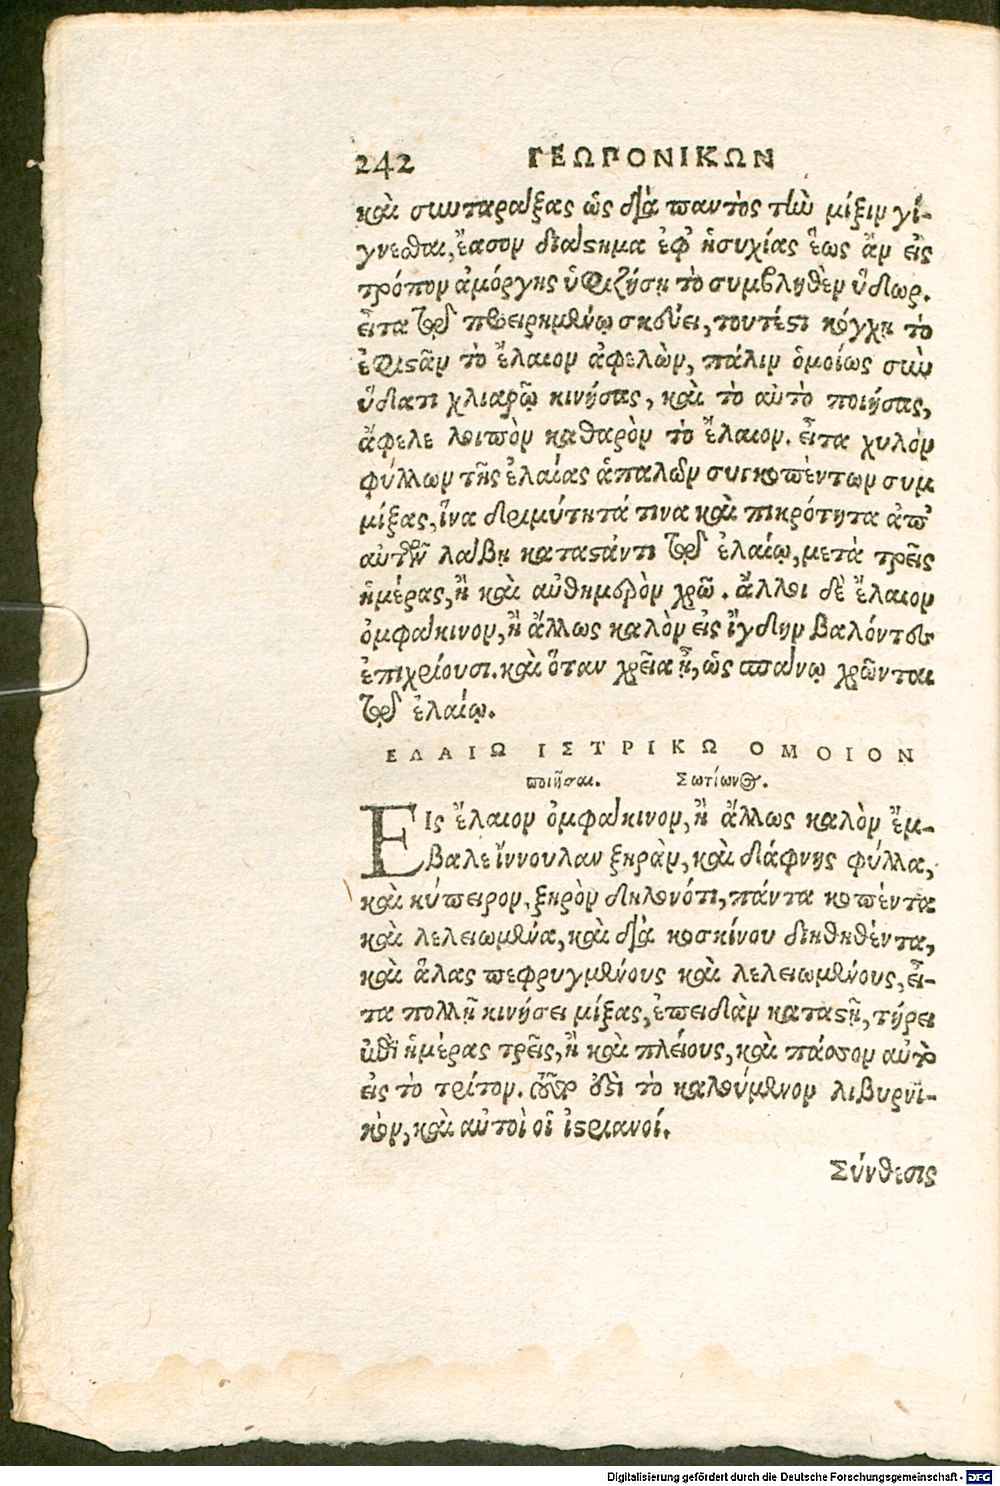 242 ΓΕΩΡΟΝΙΚΩΝ
καὶ συνταράξας ὡς διὰ παντὸς τὴν μίξιν γί-
γνεσθαι, ἔασον διάστημα ἐφ' ἡσυχίας ἕως ἂν εἰς
τρόπον ἀμόργης ὑπιζήσῃ τὸ συμβληθὲν ὕδωρ.
εἶτα τῷ προειρημένῳ σκεύει, τουτέστι κόγχῃ τὸ
ἐπιστὰν τὸ ἔλαιον ἀφελὼν, πάλιν ὁμοίως σὺν
ὕδατι χλιαρῷ κινήσας, καὶ τὸ αὐτὸ ποιήσας,
ἄφελε λοιπὸν καθαρὸν τὸ ἔλαιον. εἶτα χυλὸν
φύλλων τῆς ἐλαίας ἁπαλῶν συγκοπέντων συμ
μίξας, ἵνα δριμύτητά τινα καὶ πικρότητα ἀπ'
αὐτῶν λάβῃ καταστάντι τῷ ἐλαίῳ, μετὰ τρεῖς
ἡμέρας, ἢ καὶ αὐθημερὸν χρῶ. ἄλλοι δὲ ἔλαιον
ὀμφάκινον, ἢ ἄλλως καλὸν εἰς ἴγδην βαλόντες
ἐπιχρίουσι. καὶ ὅταν χρεία ᾖ, ὡς σπάνῳ χρῶνται
τῷ ἐλαίῳ.
ΕΛΑΙΩ ΙΣΤΡΙΚΩ ΟΜΟΙΟΝ
ποιῆσαι. Σωτίωνος.
Εἰς ἔλαιον ὀμφάκινον, ἢ ἄλλως καλὸν ἔμ-
βαλε ἵννουλαν ξηρὰν, καὶ δάφνης φύλλα,
καὶ κύπειρον, ξηρὸν δηλονότι, πάντα κοπέντα
καὶ λελειωμένα, καὶ διὰ κοσκίνου διηθηθέντα,
καὶ ἅλας πεφρυγμένους καὶ λελειωμένους, εἶ-
τα πολλῇ κινήσει μίξας, ἐπειδὰν καταστῇ, τήρει
ἐπὶ ἡμέρας τρεῖς, ἢ καὶ πλείους, καὶ πᾶσσον αὐτὸ
εἰς τὸ τρίτον. οὗπερ ἐστὶ τὸ καλούμενον λιβυρνι-
κόν, καὶ αὐτοὶ οἱ ἰστριανοί.
Σύνθεσις
Digitalisierung gefördert durch die Deutsche Forschungsgemeinschaft - DFG